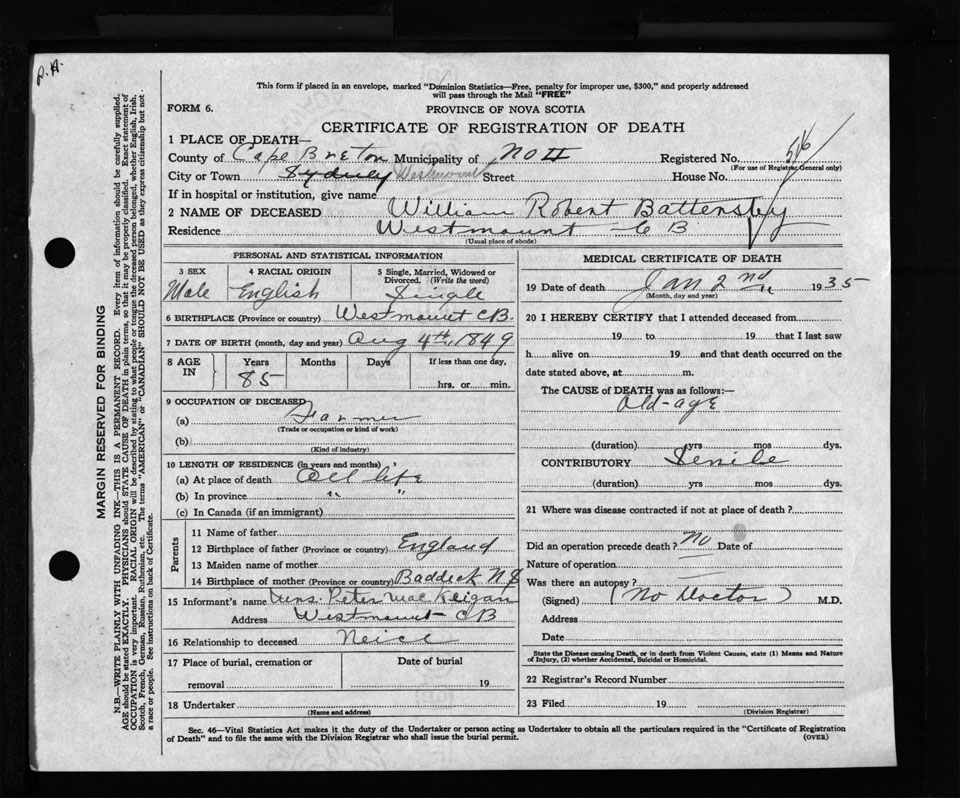 P. H.
This form if placed in an envelope, marked "Dominion Statistics—Free, penalty for improper use, $300," and properly addressed
will pass through the Mail "FREE"
FORM 6.
PROVINCE OF NOVA SCOTIA
CERTIFICATE OF REGISTRATION OF DEATH
1 PLACE OF DEATH—
County of Cape Breton Municipality of No II Registered No. 516
(For use of Registrar General only)
City or Town Sydney Westmount Street House No.
If in hospital or institution, give name
2 NAME OF DECEASED William Robert Battersby
Residence Westmount — C B
(Usual place of abode)
PERSONAL AND STATISTICAL INFORMATION
3 SEX 4 RACIAL ORIGIN 5 Single, Married, Widowed or
Divorced. (Write the word)
Male English Single
6 BIRTHPLACE (Province or country) Westmount CB.
7 DATE OF BIRTH (month, day and year) Aug 4th, 1849
8 AGE IN Years Months Days If less than one day,
85 hrs. or min.
9 OCCUPATION OF DECEASED
(a) Farmer
(Trade or occupation or kind of work)
(b)
(Kind of industry)
10 LENGTH OF RESIDENCE (in years and months)
(a) At place of death All life
(b) In province " "
(c) In Canada (if an immigrant)
Parents
11 Name of father
12 Birthplace of father (Province or country) England
13 Maiden name of mother
14 Birthplace of mother (Province or country) Baddeck N S
15 Informant's name Mrs. Peter MacKeigan
Address Westmount — CB
16 Relationship to deceased Neice
17 Place of burial, cremation or Date of burial
removal 19
18 Undertaker
(Name and address)
MEDICAL CERTIFICATE OF DEATH
19 Date of death Jan 2nd 1935
(Month, day and year)
20 I HEREBY CERTIFY that I attended deceased from
19 to 19 that I last saw
h alive on 19 and that death occurred on the
date stated above, at m.
The CAUSE of DEATH was as follows:—
Old-age
(duration) yrs mos dys.
CONTRIBUTORY Senile
(duration) yrs mos dys.
21 Where was disease contracted if not at place of death?
Did an operation precede death? No Date of
Nature of operation
Was there an autopsy?
(Signed) (No Doctor) M.D.
Address
Date
State the Disease causing Death, or in death from Violent Causes, state (1) Means and Nature
of Injury, (2) whether Accidental, Suicidal or Homicidal.
22 Registrar's Record Number
23 Filed 19
(Division Registrar)
Sec. 46—Vital Statistics Act makes it the duty of the Undertaker or person acting as Undertaker to obtain all the particulars required in the "Certificate of Registration
of Death" and to file the same with the Division Registrar who shall issue the burial permit. (OVER)
MARGIN RESERVED FOR BINDING
N.B.—WRITE PLAINLY WITH UNFADING INK—THIS IS A PERMANENT RECORD. Every item of information should be carefully supplied.
AGE should be stated EXACTLY. PHYSICIANS should STATE CAUSE OF DEATH in plain terms, so that it may be properly classified. Exact statement of
OCCUPATION is very important. RACIAL ORIGIN will be described by stating to what people or tongue the deceased person belonged, whether English, Irish,
Scotch, French, German, Russian, Ruthenian, etc. The terms "AMERICAN" or "CANADIAN" SHOULD NOT BE USED as they express citizenship but not
a race or people. See instructions on back of Certificate.